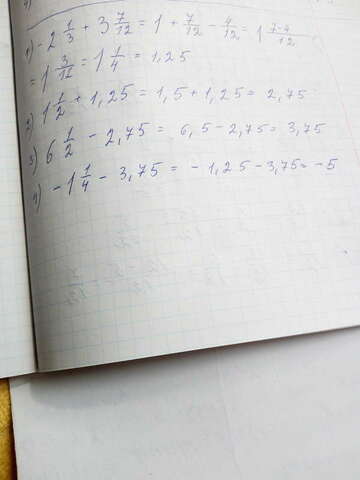 1) - 2 1/3 + 3 7/12 = 1 + 7/12 - 4/12 = 1 7-4/12
= 1 3/12 = 1 1/4 = 1,25
2) 1 1/2 + 1,25 = 1,5 + 1,25 = 2,75
3) 6 1/2 - 2,75 = 6,5 - 2,75 = 3,75
4) - 1 1/4 - 3,75 = - 1,25 - 3,75 = - 5